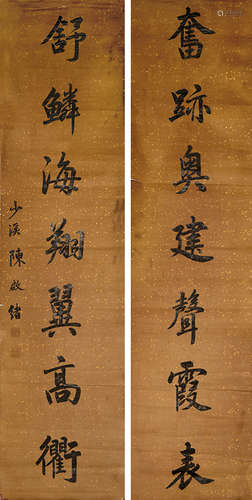 奮跡奧建聲霞表
舒鱗海翔翼高衢
少溪陳啟